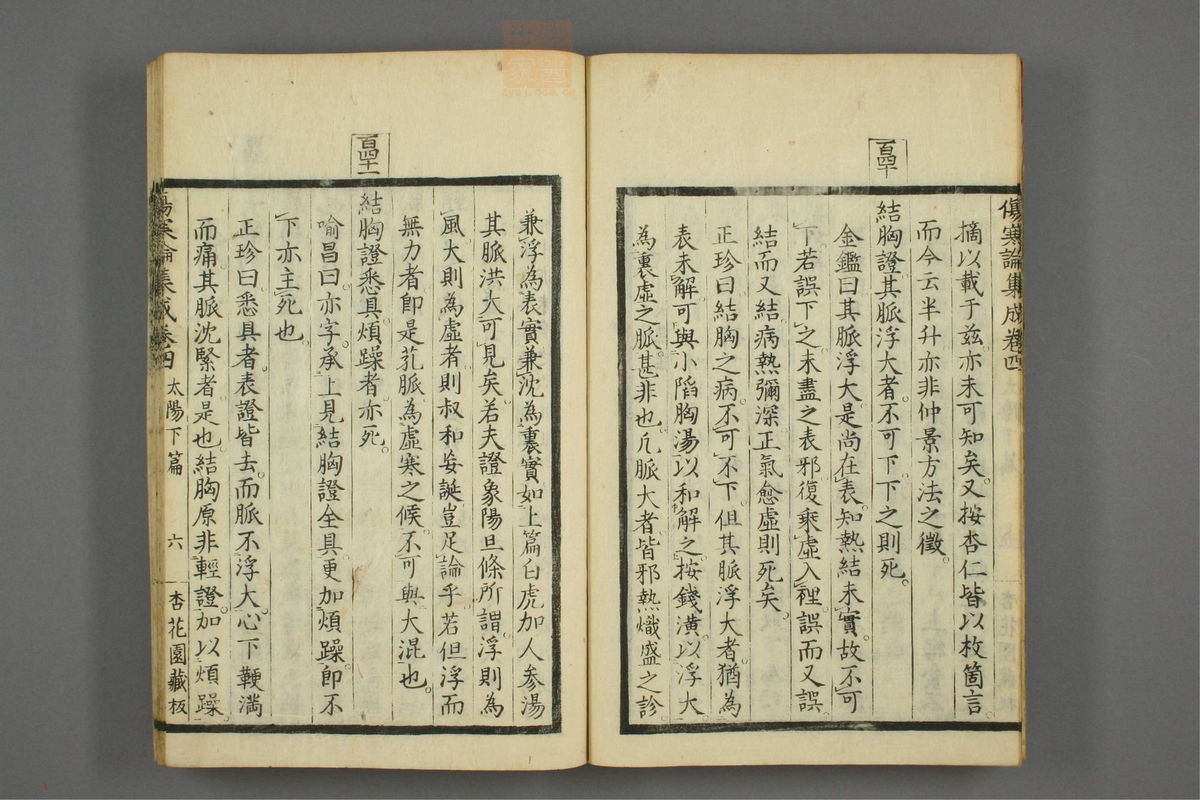 傷寒論集成卷四
百四十
摘以載于玆亦未可知矣。又按杏仁皆以枚箇言
而今云半升亦非仲景方法之徵。
結胸證其脈浮大者。不可下。下之則死。
金鑑曰其脈浮大。是尚在表。知熱結未實。故不可
下。若誤下之。未盡之表邪復乘虛入裡。誤而又誤
結而又結。病熱彌深。正氣愈虛則死矣。
正珍曰結胸之病。不可不下。但其脈浮大者。猶為
表未解。可與小陷胸湯以和解之。按錢潢以浮大
為裏虛之脈。甚非也。凡脈大者。皆邪熱熾盛之診
兼浮為表實。兼沈為裏實。如上篇白虎加人參湯
其脈洪大。可見矣。若夫證象陽旦條所謂浮則為
風。大則為虛者。則叔和妄誕。豈足論乎。若但浮而
無力者。即是芤脈。為虛寒之候。不可與大混也。
百四十一
結胸證悉具。煩躁者。亦死。
喻昌曰。亦字。承上見結胸證全具。更加煩躁。即不
下亦主死也。
正珍曰悉具者。表證皆去。而脈不浮大。心下鞕滿
而痛。其脈沈緊者是也。結胸原非輕證。加以煩躁。
傷寒論集成卷四 太陽下篇 六 杏花園藏板